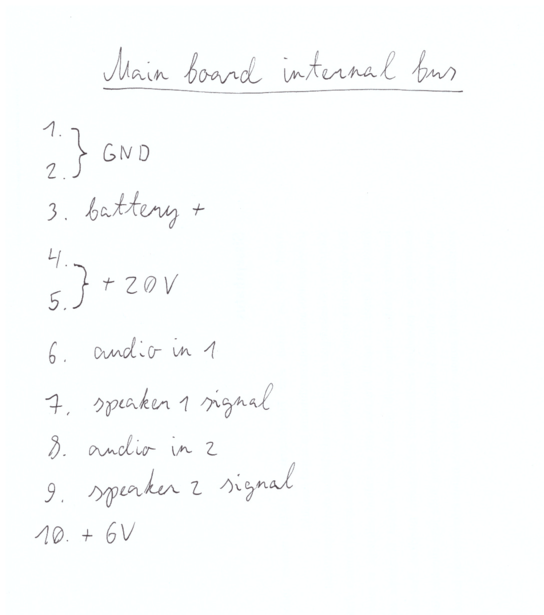 Main board internal bus
1.
} GND
2.
3. battery +
4.
} + 20V
5.
6. audio in 1
7. speaker 1 signal
8. audio in 2
9. speaker 2 signal
10. + 6V